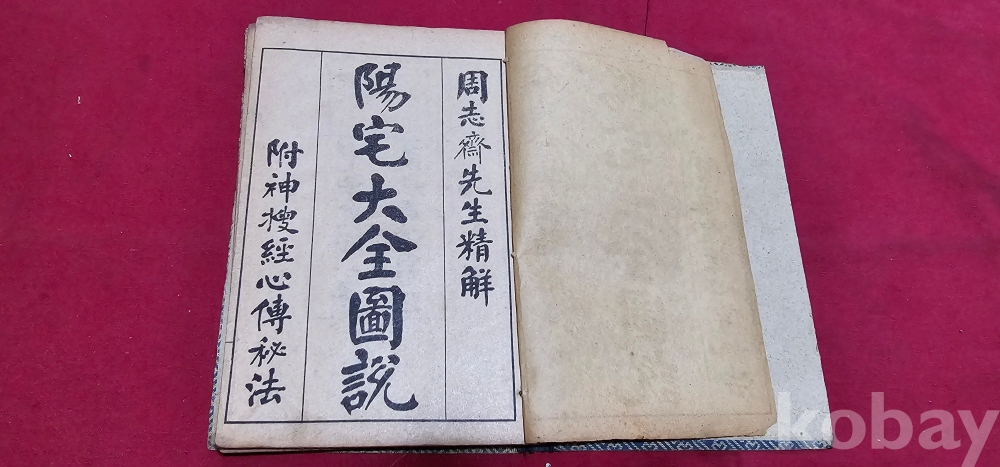 周志齋先生精解
陽宅大全圖説
附神搜經心傳秘法
kobay